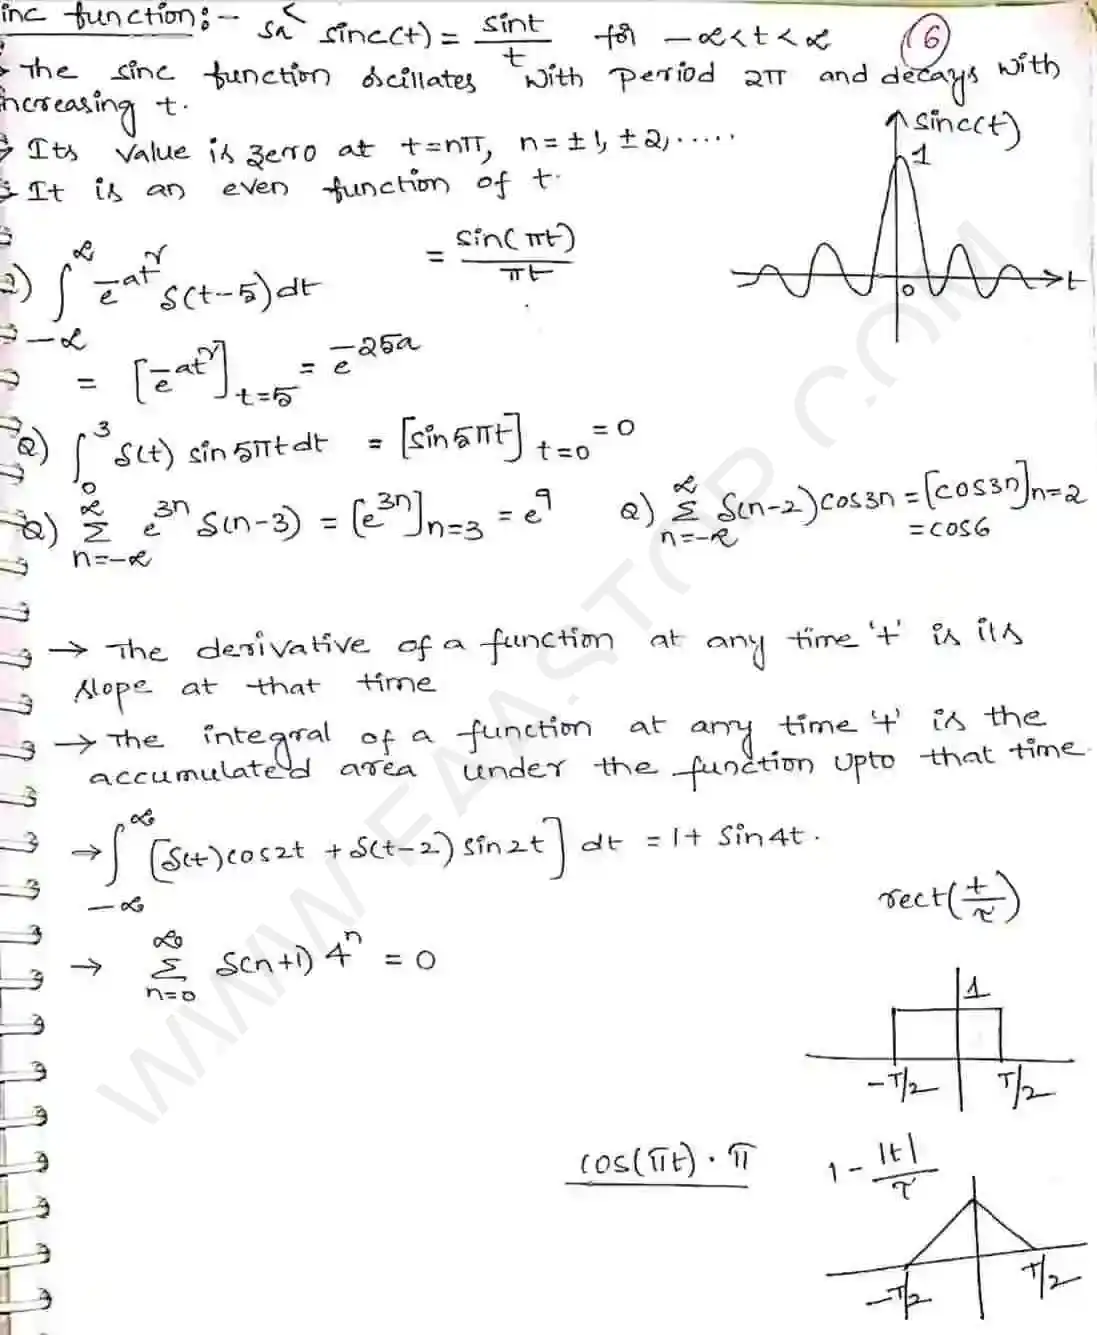 inc function:- sa< sinc(t) = sint/t for -∞<t<∞ (6)
The sinc function oscillates with period 2π and decays with
increasing t.
Its value is zero at t=nπ, n=±1, ±2,.....
It is an even function of t.
sinc(t)
1
0
t
= sin(πt)/πt
Q) ∫_{-∞}^{∞} e^{-at²} δ(t-5)dt
= [e^{-at²}]_{t=5} = e^{-25a}
Q) ∫_0^3 δ(t) sin5πt dt = [sin5πt]_{t=0} = 0
Q) Σ_{n=-∞}^{∞} e^{3n} δ(n-3) = [e^{3n}]_{n=3} = e^9 Q) Σ_{n=-∞}^{∞} δ(n-2)cos3n = [cos3n]_{n=2}
= cos6
→ The derivative of a function at any time 't' is its
slope at that time
→ The integral of a function at any time 't' is the
accumulated area under the function upto that time.
→ ∫_{-∞}^{∞} [δ(t)cos2t + δ(t-2) sin2t] dt = 1+ Sin4t.
rect(t/τ)
→ Σ_{n=0}^{∞} δ(n+1) 4^n = 0
1
-T/2 T/2
cos(πt).π 1 - |t|/τ
-T/2 T/2
WWW.EAASTOPPC.COM